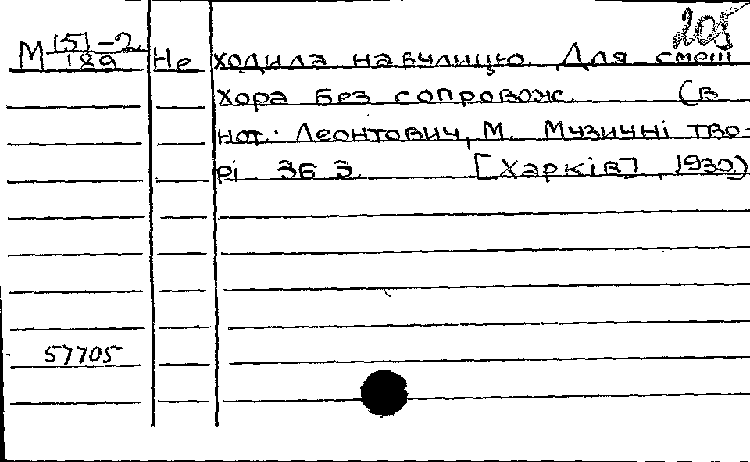 205
М 151-2 Не ходила на вулицю. Для смеш
189
хора без сопровож. (в
нот.: Леонтович, М. Музичні тво-
рі Зб 3. [Харків], 1930)
57705